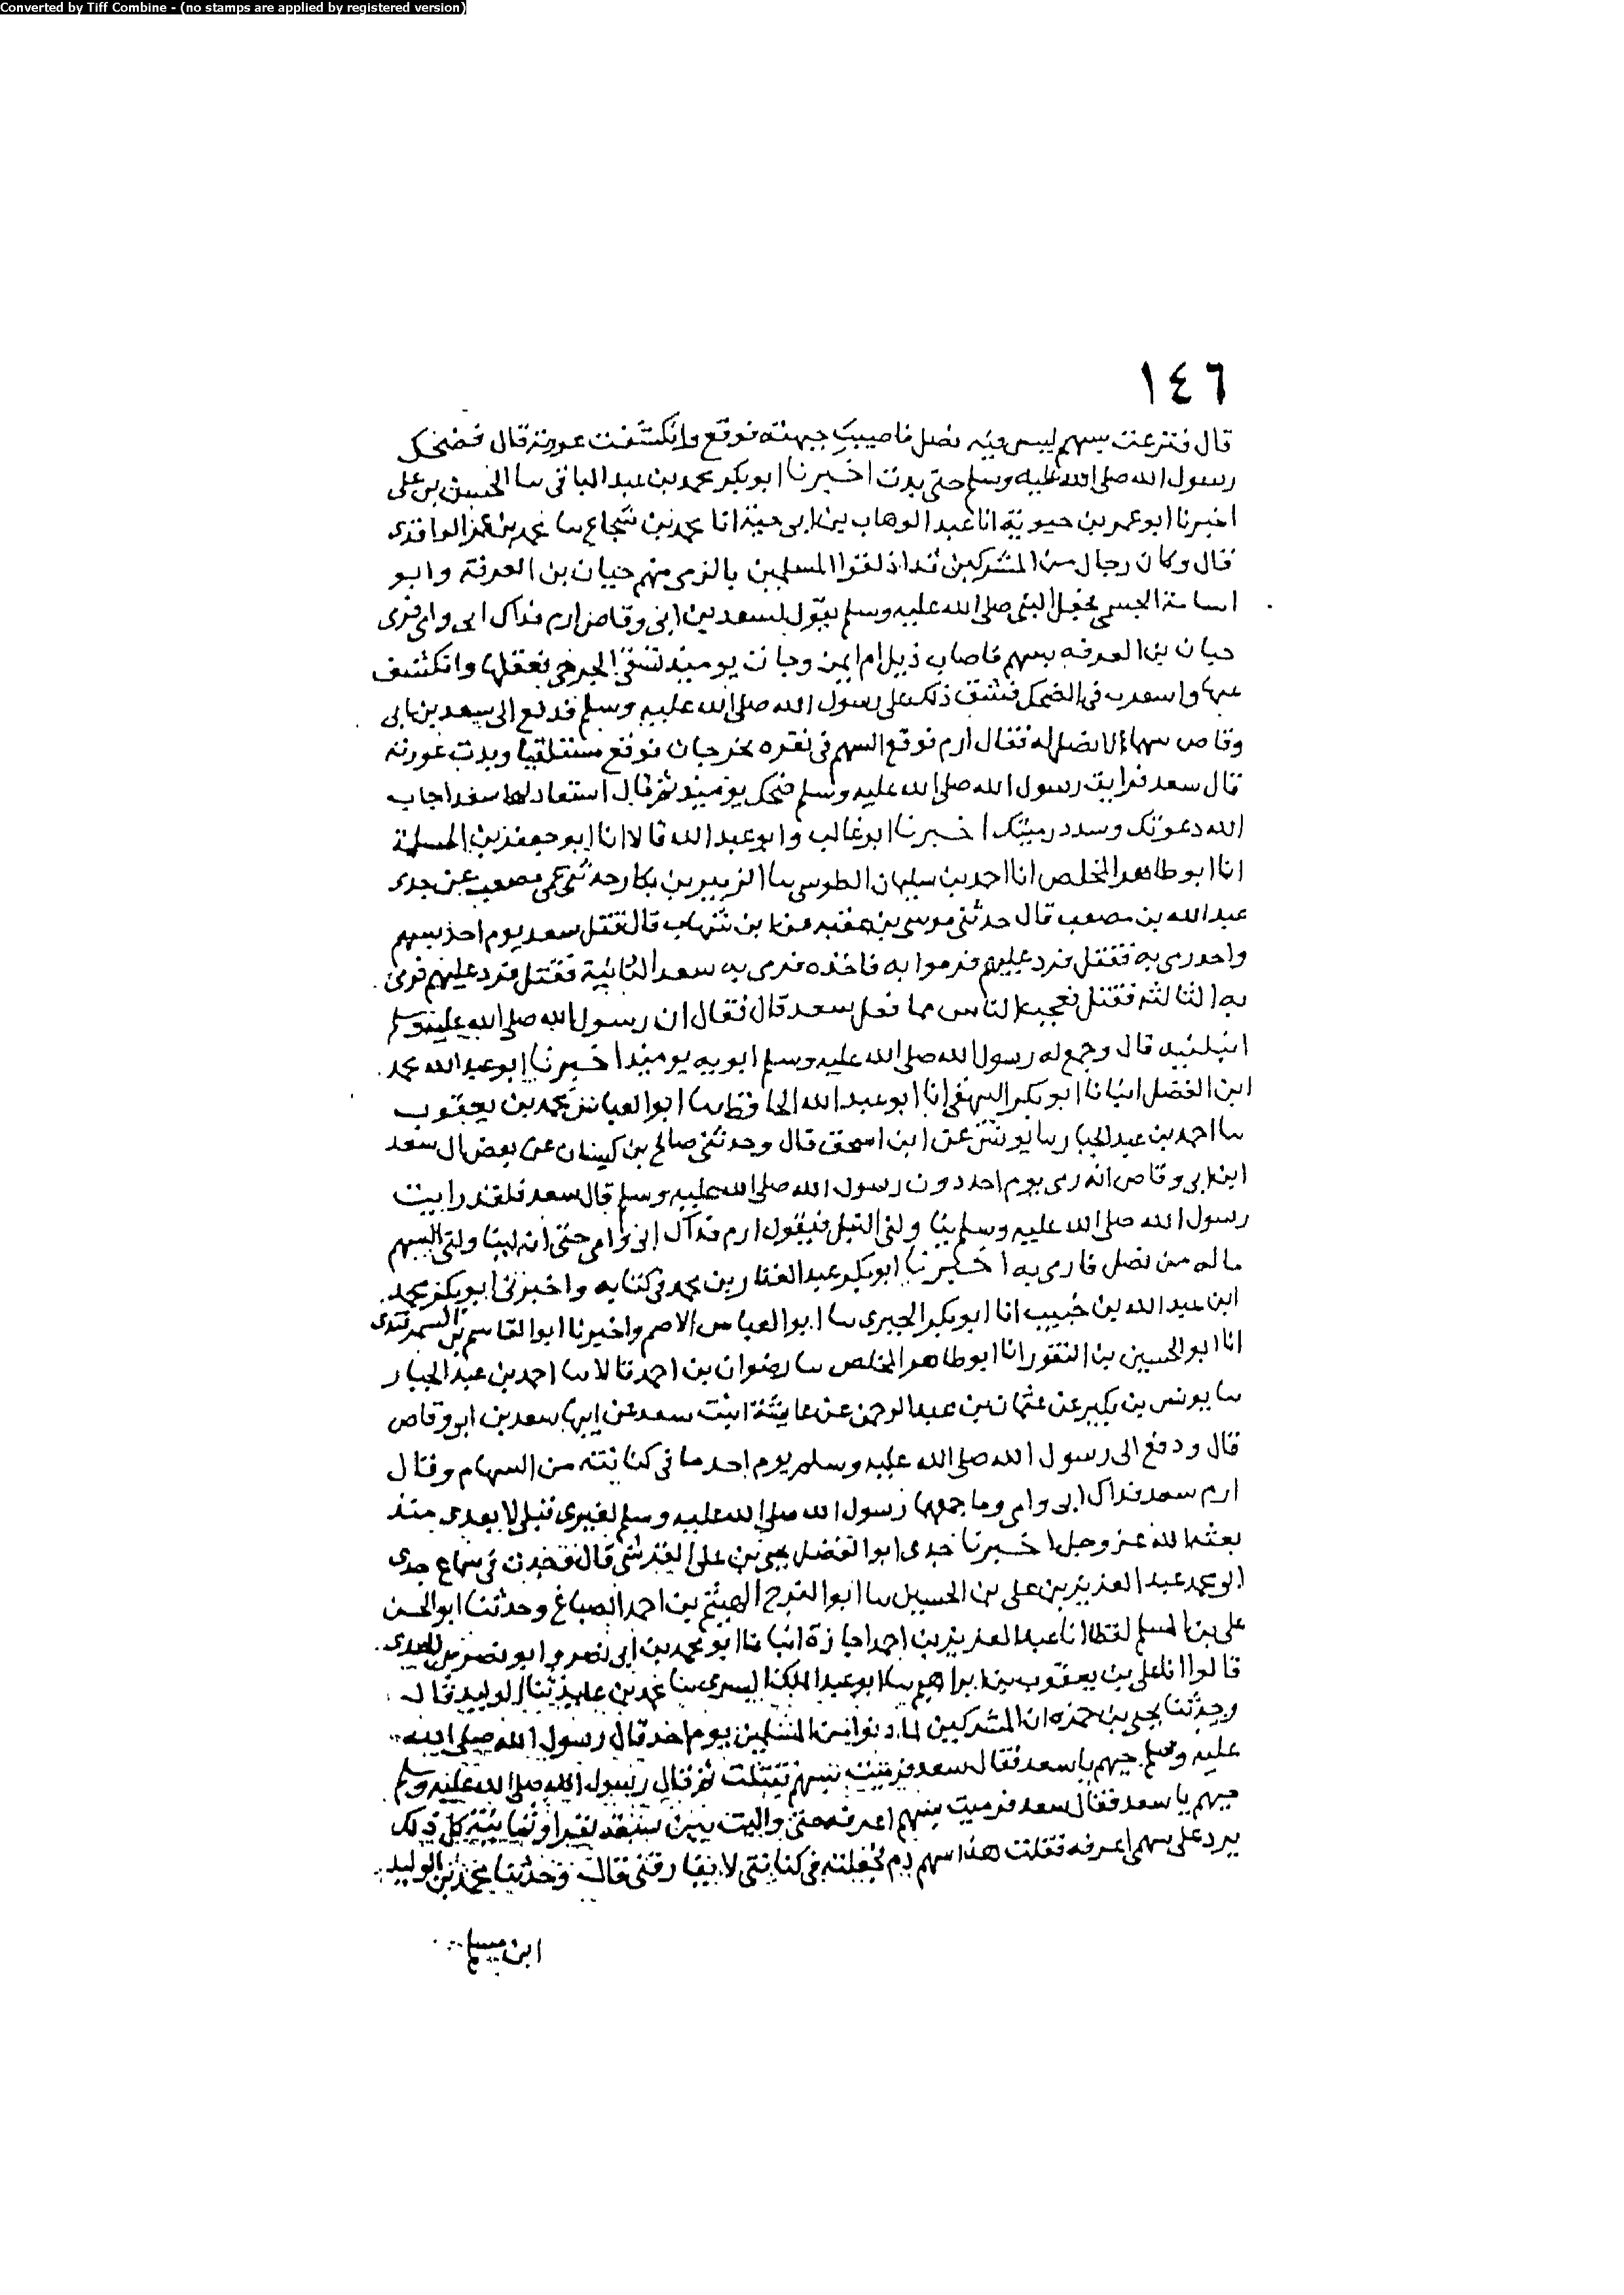 Converted by Tiff Combine - (no stamps are applied by registered version)
١٤٦
قال فنزعت بسهم ليس فيه نصل فاصيب جبهته فوقع وانكشفت عورته قال فضحك
رسول الله صلى الله عليه وسلم حتى بدت اخبرنا ابو بكر محمد بن عبد الباقي سا الحسن بن على
اخبرنا ابو عمر بن حيوية انا عبد الوهاب بن ابى حية انا محمد بن شجاع سا محمد بن عمر الواقدى
قال وكان رجال من المشركين قد اذلقوا المسلمين بالرمى منهم حيان بن العرقة وابو
اسامة الجسمى فجعل النبى صلى الله عليه وسلم يقول لسعد بن ابى وقاص ارم فداك ابى وامى فرمى
حيان بن العرقه بسهم فاصاب ذيل ام ايمن وجات يوميذ تسقى الجرحى فعقلها وانكشف
عنها واستغرب فى الضحك فشق ذلك على رسول الله صلى الله عليه وسلم فدفع الى سعد بن ابى
وقاص سهما لا نصل له فقال ارم فوقع السهم فى نقره نحر حبان فوقع مستلقيا وبدت عورته
قال سعد فرايت رسول الله صلى الله عليه وسلم ضحك يوميذ ثم قال استقاد لها سعد اجاب
الله دعوتك وسدد رميتك اخبرنا ابو غالب وابو عبد الله قالا انا ابو جعفر بن المسلمة
انا ابو طاهر المخلص انا احمد بن سليمان الطوسى سا الزبير بن بكار حدثنى عمى مصعب عن جدى
عبد الله بن مصعب قال حدثنى موسى بن عقبه عن ابن شهاب قال قتل سعد يوم احد بسهم
واحد رمى به فقتل فرد عليهم فرموا به فاخذه فرمى به سعد الثانية فقتل فرد عليهم فرمى
به الثالثه فقتل فعجب الناس مما فعل سعد قال فقال ان رسول الله صلى الله عليه وسلم
انبلنيه قال وجمع له رسول الله صلى الله عليه وسلم ابويه يوميذ اخبرنا ابو عبد الله محمد
ابن الفضل انبانا ابو بكر البيهقى انا ابو عبد الله الحافظ سا ابو العباس محمد بن يعقوب
سا احمد بن عبد الجبار سا يونس عن ابن اسحق قال وحدثنى صالح بن كيسان عن بعض ال سعد
ابن ابى وقاص انه رمى يوم احد دون رسول الله صلى الله عليه وسلم قال سعد فلقد رايت
رسول الله صلى الله عليه وسلم يناولنى النبل فيقول ارم فداك ابى وامى حتى انه ليناولنى السهم
ما له من نصل فارمى به اخبرنا ابو بكر عبد الغفار بن محمد فى كتابه واخبرنى ابو بكر محمد
ابن عبد الله بن حبيب انا ابو بكر الحيرى سا ابو العباس الاصم واخبرنا ابو القاسم بن السمرقندى
انا ابو الحسين بن النقور انا ابو طاهر المخلص سا رضوان بن احمد قالا سا احمد بن عبد الجبار
سا يونس بن بكير عن عثمان بن عبد الرحمن عن عايشة ابنت سعد عن ابيها سعد بن ابى وقاص
قال ودفع الى رسول الله صلى الله عليه وسلم يوم احد ما فى كنانته من السهام وقال
ارم سعد فداك ابى وامى وما جمعها رسول الله صلى الله عليه وسلم لغيرى قبلى لا بعدى منذ
بعثه الله عز وجل اخبرنا جدى ابو الفضل يحيى بن على القرشى قال وجدت فى سماع جدى
ابو محمد عبد العزيز بن على بن الحسين سا ابو الفرج الهيثم بن احمد الصباغ وحدثنا ابو الحسن
على بن المسلم لفظا انا عبد العزيز بن احمد اجازة انبانا ابو محمد بن ابى نصر وابو نصر بن الجندى
قالوا انا على بن يعقوب بن ابراهيم سا ابو عبد الملك البسرى سا محمد بن عايذ ثنا الوليد قال
وحدثنا يحيى بن حمزه ان المشركين لما دنوا من المسلمين يوم احد قال رسول الله صلى الله
عليه وسلم جبهم يا سعد فقال سعد فرميت بسهم فقتلت ثم قال رسول الله صلى الله عليه وسلم
جبهم يا سعد فقال سعد فرميت بسهم اعرفه حتى واليت بين سبعة نفر او ثمانية كل ذلك
يرد على سهمى اعرفه فقلت هذا سهم دم فجعلته فى كنانتى لا يفارقنى قال وحدثنا محمد بن الوليد
ابن مسلم